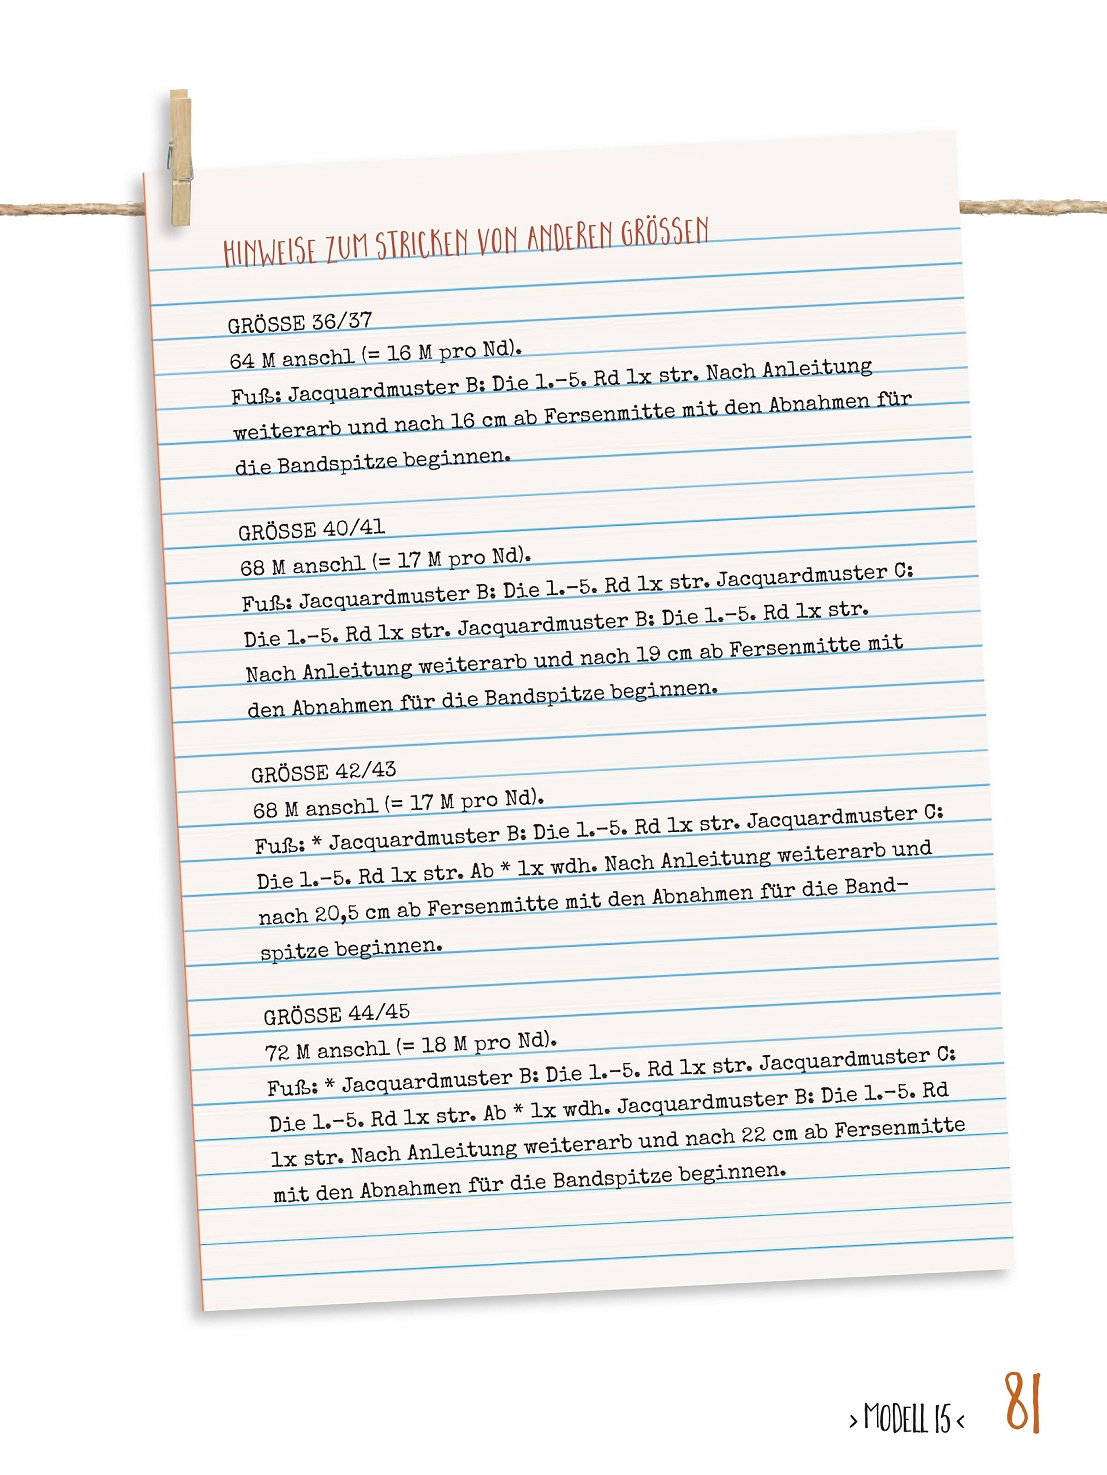 HINWEISE ZUM STRICKEN VON ANDEREN GRÖSSEN
GRÖSSE 36/37
64 M anschl (= 16 M pro Nd).
Fuß: Jacquardmuster B: Die 1.–5. Rd 1x str. Nach Anleitung
weiterarb und nach 16 cm ab Fersenmitte mit den Abnahmen für
die Bandspitze beginnen.
GRÖSSE 40/41
68 M anschl (= 17 M pro Nd).
Fuß: Jacquardmuster B: Die 1.–5. Rd 1x str. Jacquardmuster C:
Die 1.–5. Rd 1x str. Jacquardmuster B: Die 1.–5. Rd 1x str.
Nach Anleitung weiterarb und nach 19 cm ab Fersenmitte mit
den Abnahmen für die Bandspitze beginnen.
GRÖSSE 42/43
68 M anschl (= 17 M pro Nd).
Fuß: * Jacquardmuster B: Die 1.–5. Rd 1x str. Jacquardmuster C:
Die 1.–5. Rd 1x str. Ab * 1x wdh. Nach Anleitung weiterarb und
nach 20,5 cm ab Fersenmitte mit den Abnahmen für die Band–
spitze beginnen.
GRÖSSE 44/45
72 M anschl (= 18 M pro Nd).
Fuß: * Jacquardmuster B: Die 1.–5. Rd 1x str. Jacquardmuster C:
Die 1.–5. Rd 1x str. Ab * 1x wdh. Jacquardmuster B: Die 1.–5. Rd
1x str. Nach Anleitung weiterarb und nach 22 cm ab Fersenmitte
mit den Abnahmen für die Bandspitze beginnen.
> MODELL 15 < 81